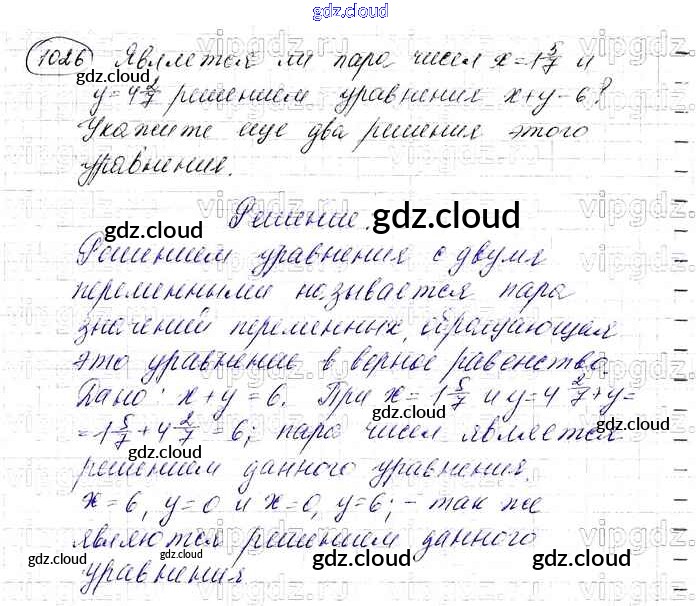 gdz.cloud
1026 Является ли пара чисел x=1 5/7 и
y=4 2/7 решением уравнения x+y=6?
Укажите еще два решения этого
уравнения.
Решение.
gdz.cloud
Решением уравнения с двумя
переменными называется пара
значений переменных, обращающая
это уравнение в верное равенство.
Дано: x+y=6. При x=1 5/7 и y=4 2/7 x+y=
=1 5/7+4 2/7=6; пара чисел является
решением данного уравнения.
x=6, y=0 и x=0, y=6; - так же
являются решением данного
уравнения
gdz.cloud